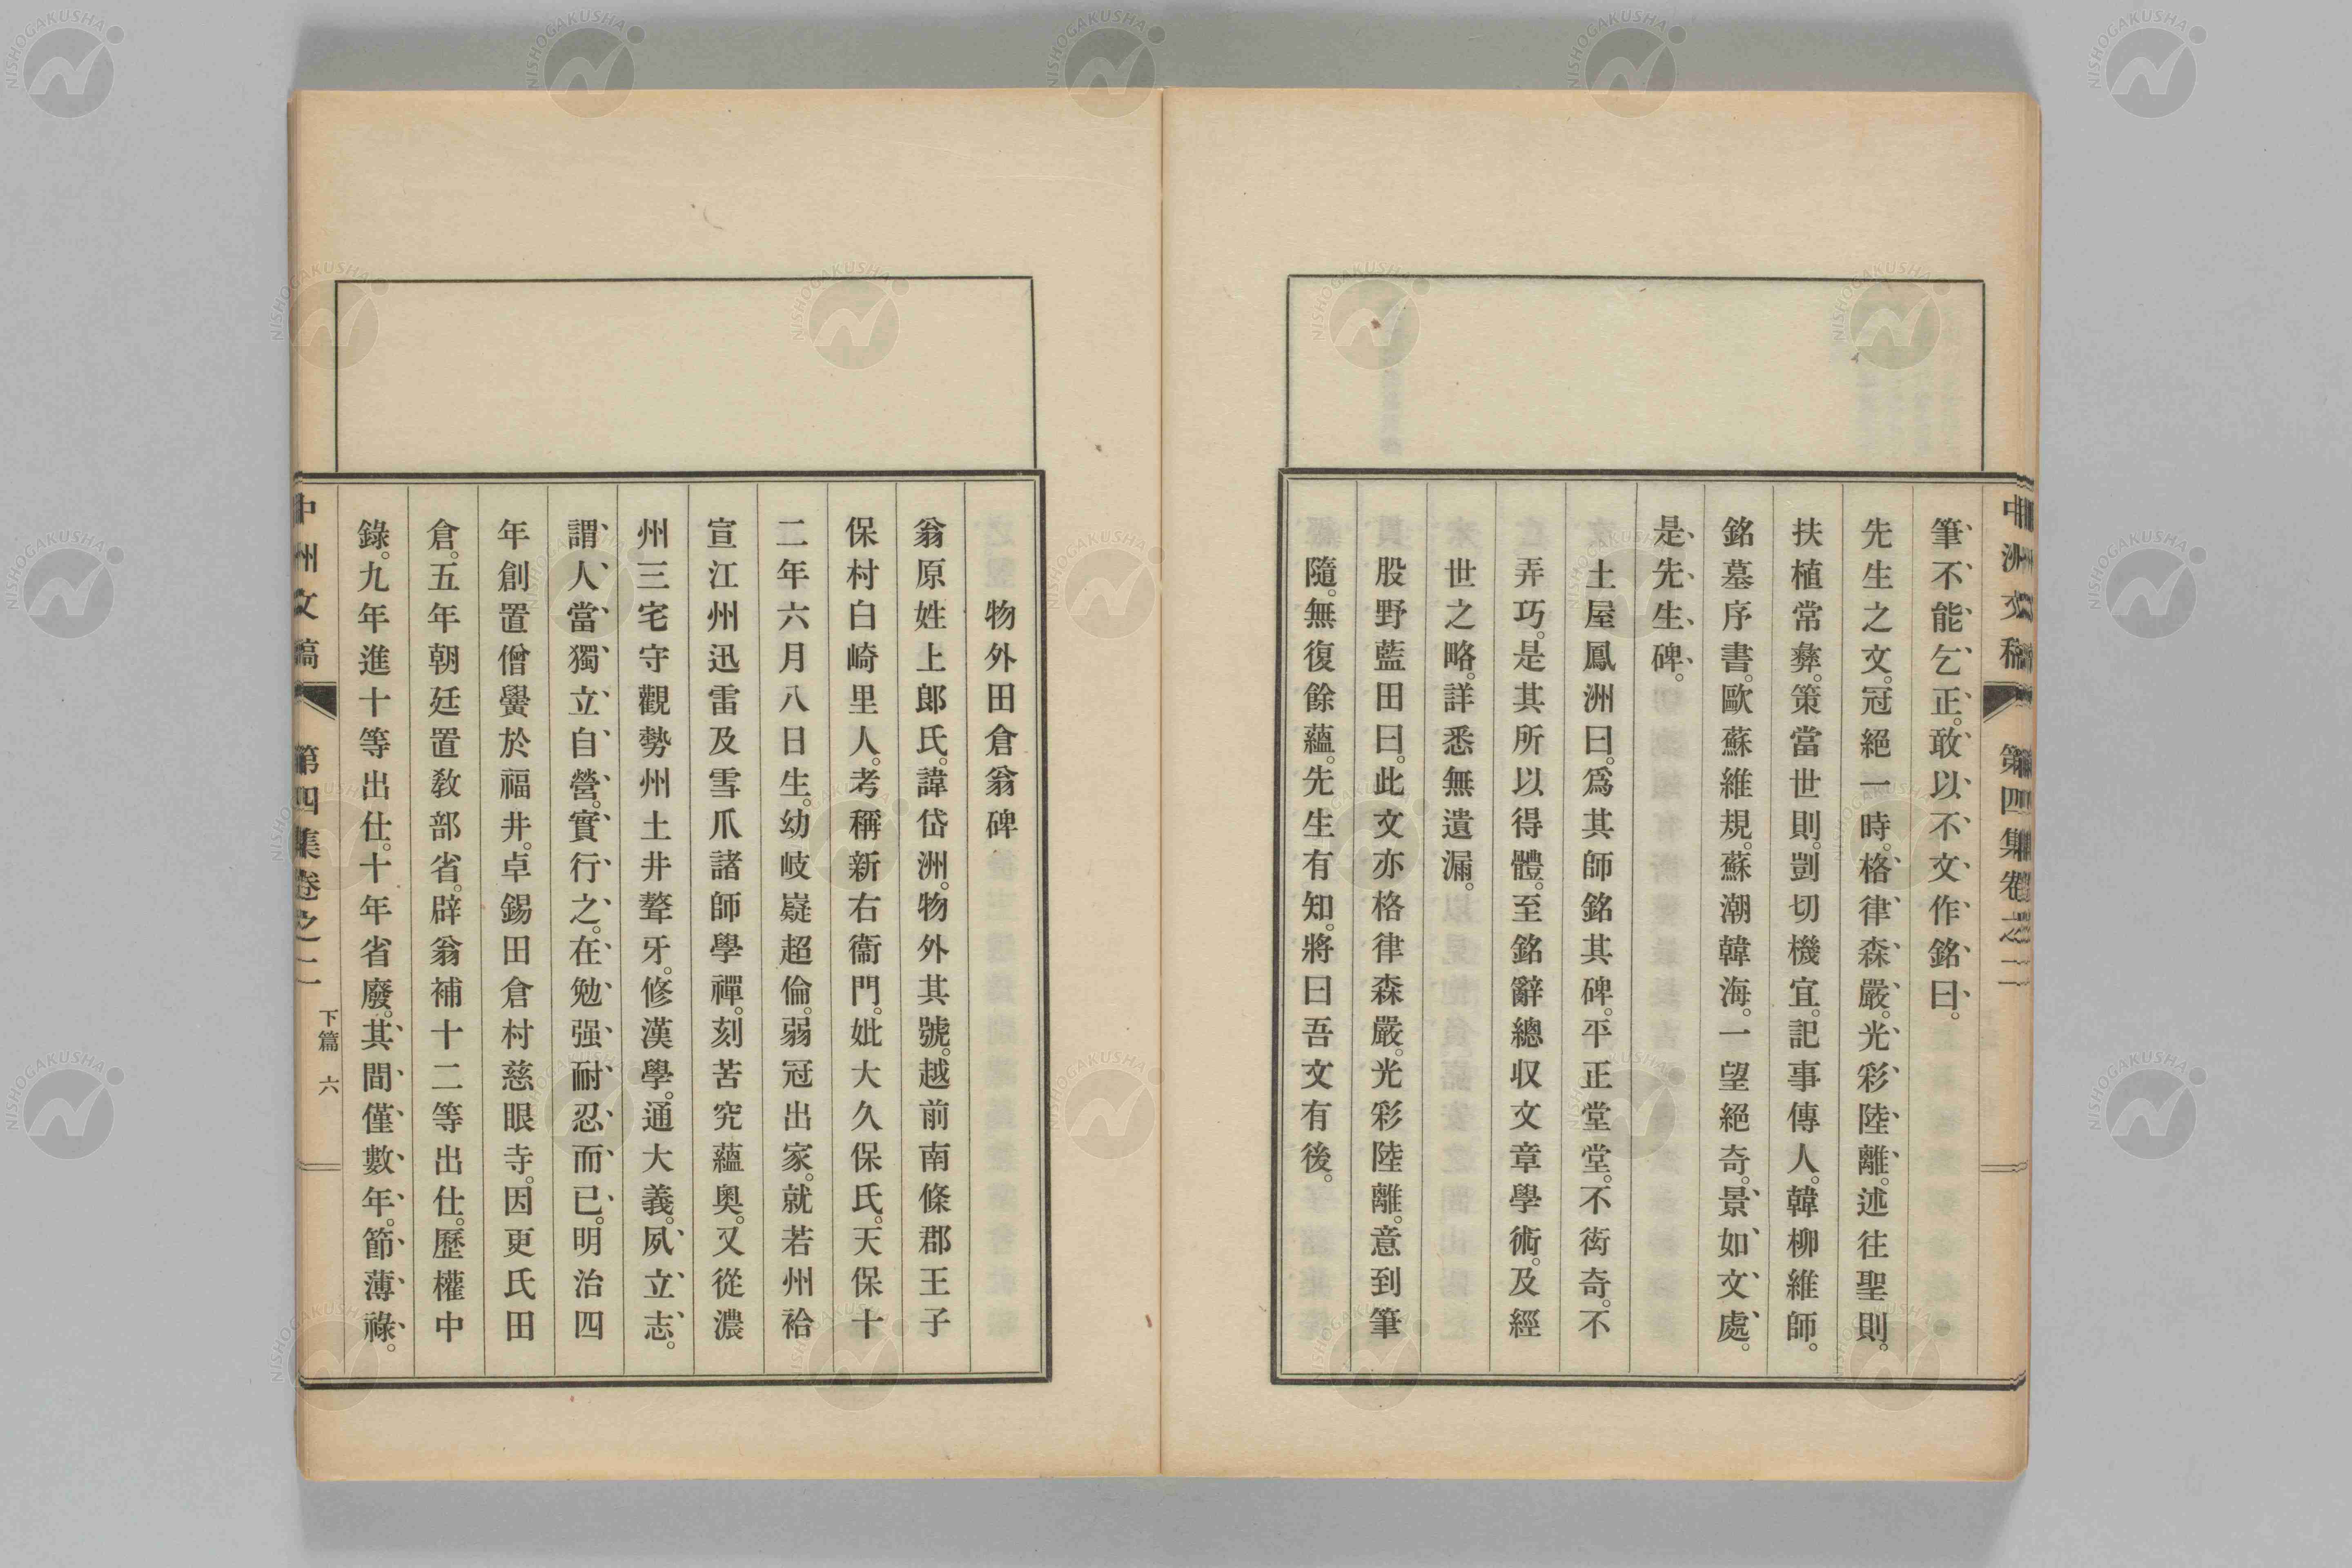 筆不能乞正。敢以不文作銘曰。
先生之文。冠絕一時。格律森嚴。光彩陸離。述往聖則。
扶植常彝。策當世則。剴切機宜。記事傳人。韓柳維師。
銘墓序書。歐蘇維規。蘇潮韓海。一望絕奇。景如文處。
是先生碑。
土屋鳳洲曰。爲其師銘其碑。平正堂堂。不衒奇。不
弄巧。是其所以得體。至銘辭總収文章學術。及經
世之略。詳悉無遺漏。
股野藍田曰。此文亦格律森嚴。光彩陸離。意到筆
隨。無復餘蘊。先生有知。將曰吾文有後。
物外田倉翁碑
翁原姓上郎氏。諱岱洲。物外其號。越前南條郡王子
保村白崎里人。考稱新右衞門。妣大久保氏。天保十
二年六月八日生。幼岐嶷超倫。弱冠出家。就若州袷
宣江州迅雷及雪爪諸師學禪。刻苦究蘊奧。又從濃
州三宅守觀勢州土井聱牙。修漢學。通大義。夙立志。
謂人當獨立自營。實行之。在勉强耐忍而已。明治四
年創置僧黌於福井。卓錫田倉村慈眼寺。因更氏田
倉。五年朝廷置敎部省。辟翁補十二等出仕。歷權中
錄。九年進十等出仕。十年省廢。其間僅數年。節薄祿。
中洲文稿 第四集卷之二
中洲文稿 第四集卷之二 下篇 六
NISHOGAKUSHA